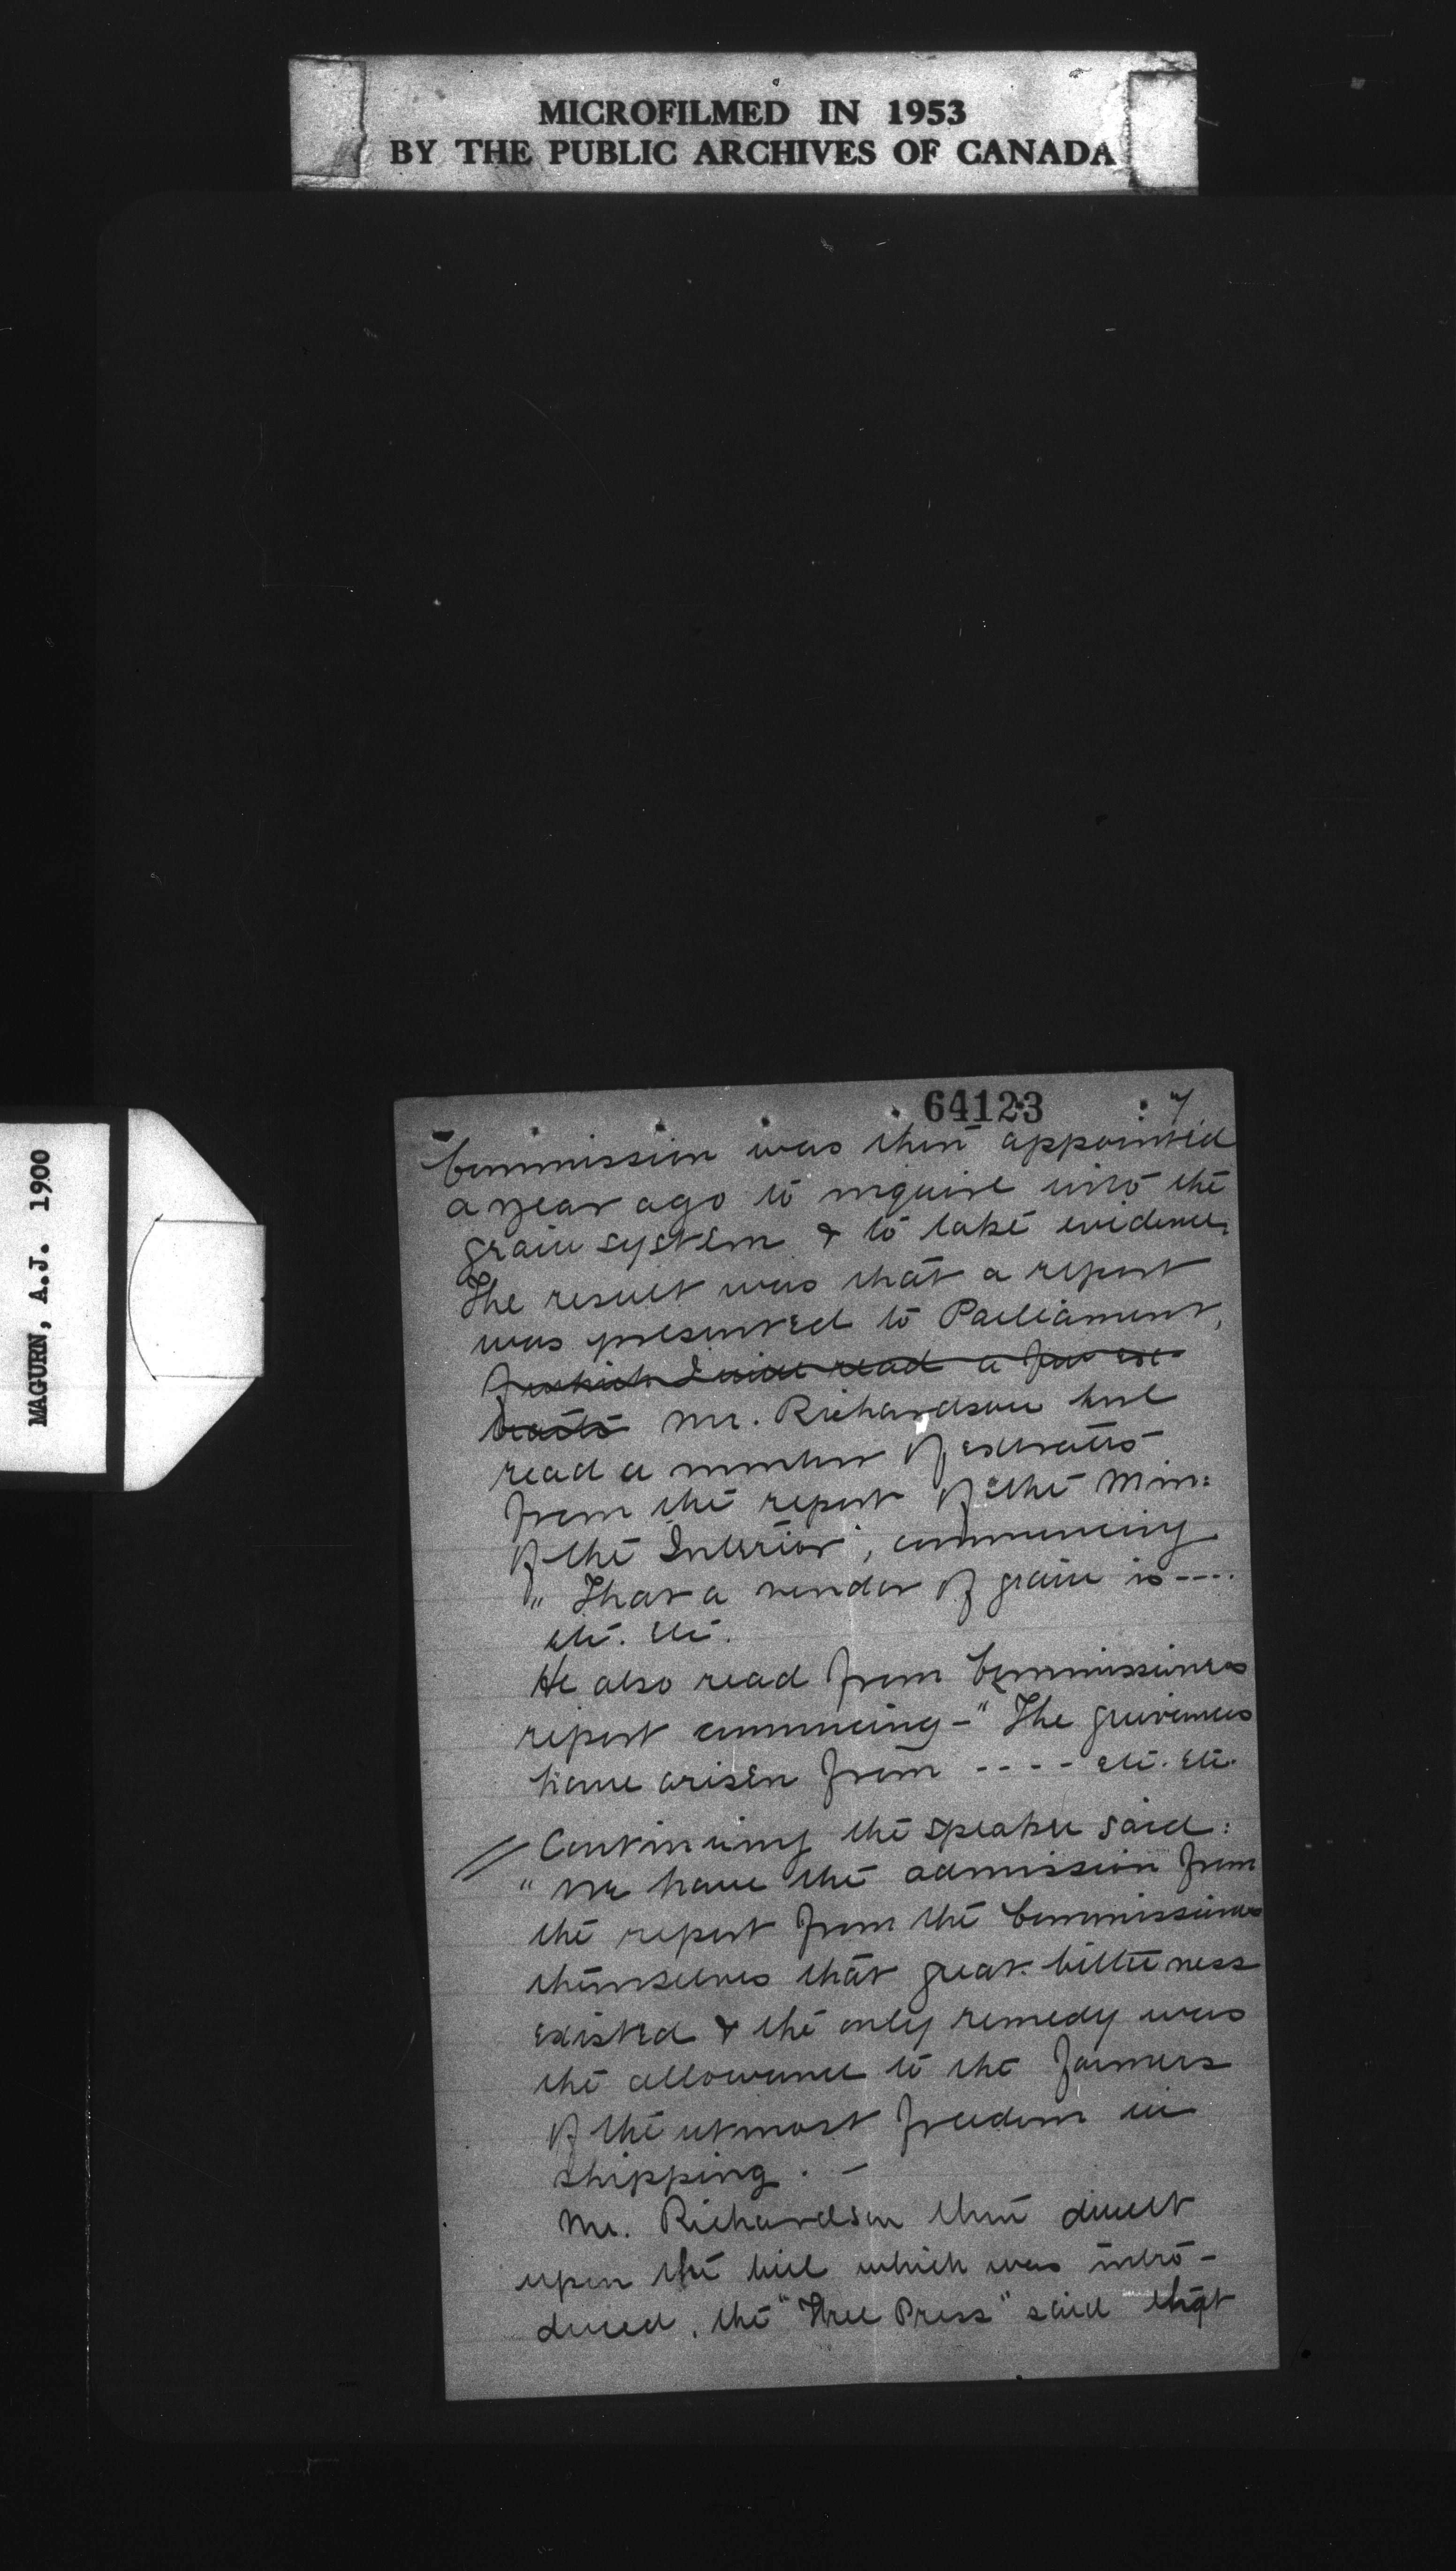 MICROFILMED IN 1953
BY THE PUBLIC ARCHIVES OF CANADA
MAGURN, A.J. 1900
64123
7
Commission was then appointed
a year ago to inquire into the
grain system & to take evidence,
The result was that a report
was presented to Parliament,
of which I will read a few ex-
tracts Mr. Richardson here
read a number of extracts
from the report of the Min:
of the Interior, commencing
" That a vendor of grain is ----
etc. etc.
He also read from Commissioners
report commencing - " The grievances
have arisen from ---- etc. etc.
// Continuing the speaker said:
" We have the admission from
the report from the Commissioners
themselves that great bitterness
existed & the only remedy was
the allowance to the farmers
of the utmost freedom in
shipping. -
Mr. Richardson then dwelt
upon the bill which was intro-
duced. the "Free Press" said that